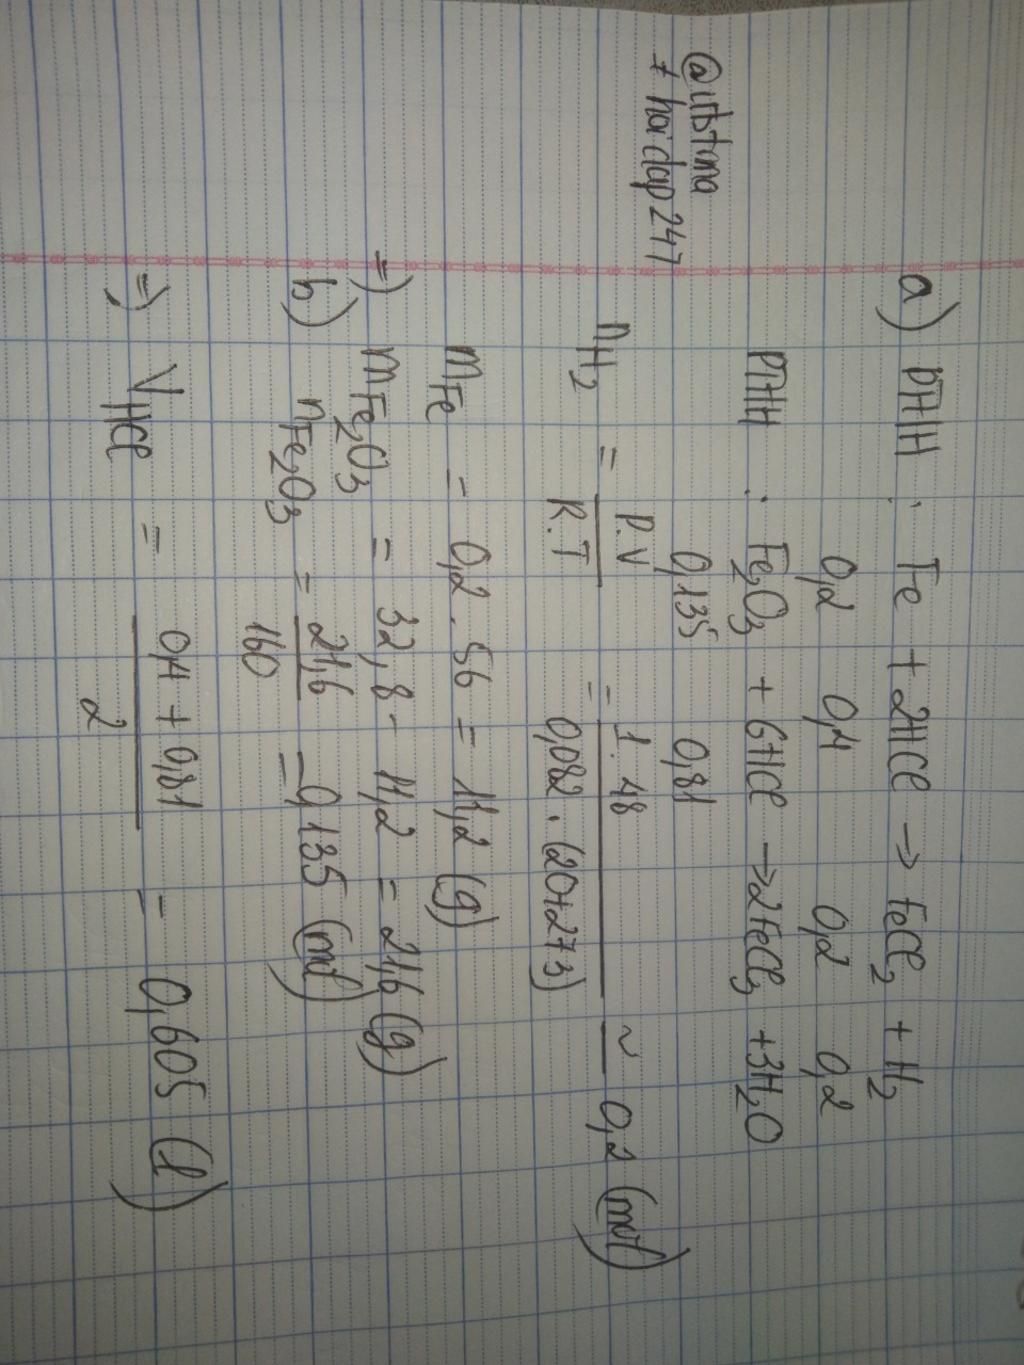 @itbtma
# hoidap247
a) PTHH : Fe + 2HCl → FeCl₂ + H₂
0,2 0,4 0,2 0,2
PTHH : Fe₂O₃ + 6HCl → 2FeCl₃ + 3H₂O
0,135 0,81
nH₂ = P.V / R.T = 1.48 / 0,082.(20+273) ≈ 0,2 (mol)
mFe = 0,2.56 = 11,2 (g)
=) mFe₂O₃ = 32,8 - 11,2 = 21,6 (g)
b) nFe₂O₃ = 21,6 / 160 = 0,135 (mol)
=) VHCl = 0,4 + 0,81 / 2 = 0,605 (l)